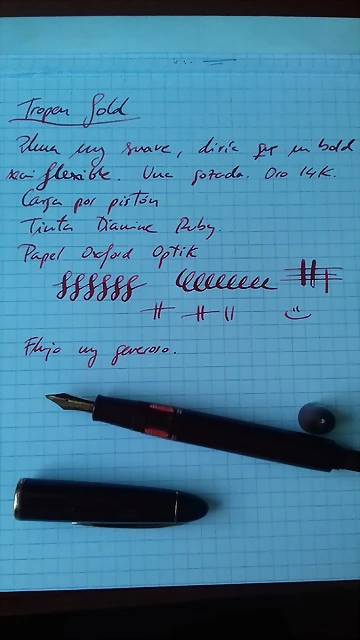 Tropen Gold
Pluma muy suave, diría que un bold
semi flexible. Una gozada. Oro 14K.
Carga por pistón
Tinta Diamine Ruby.
Papel Oxford Optik
Flujo muy generoso.